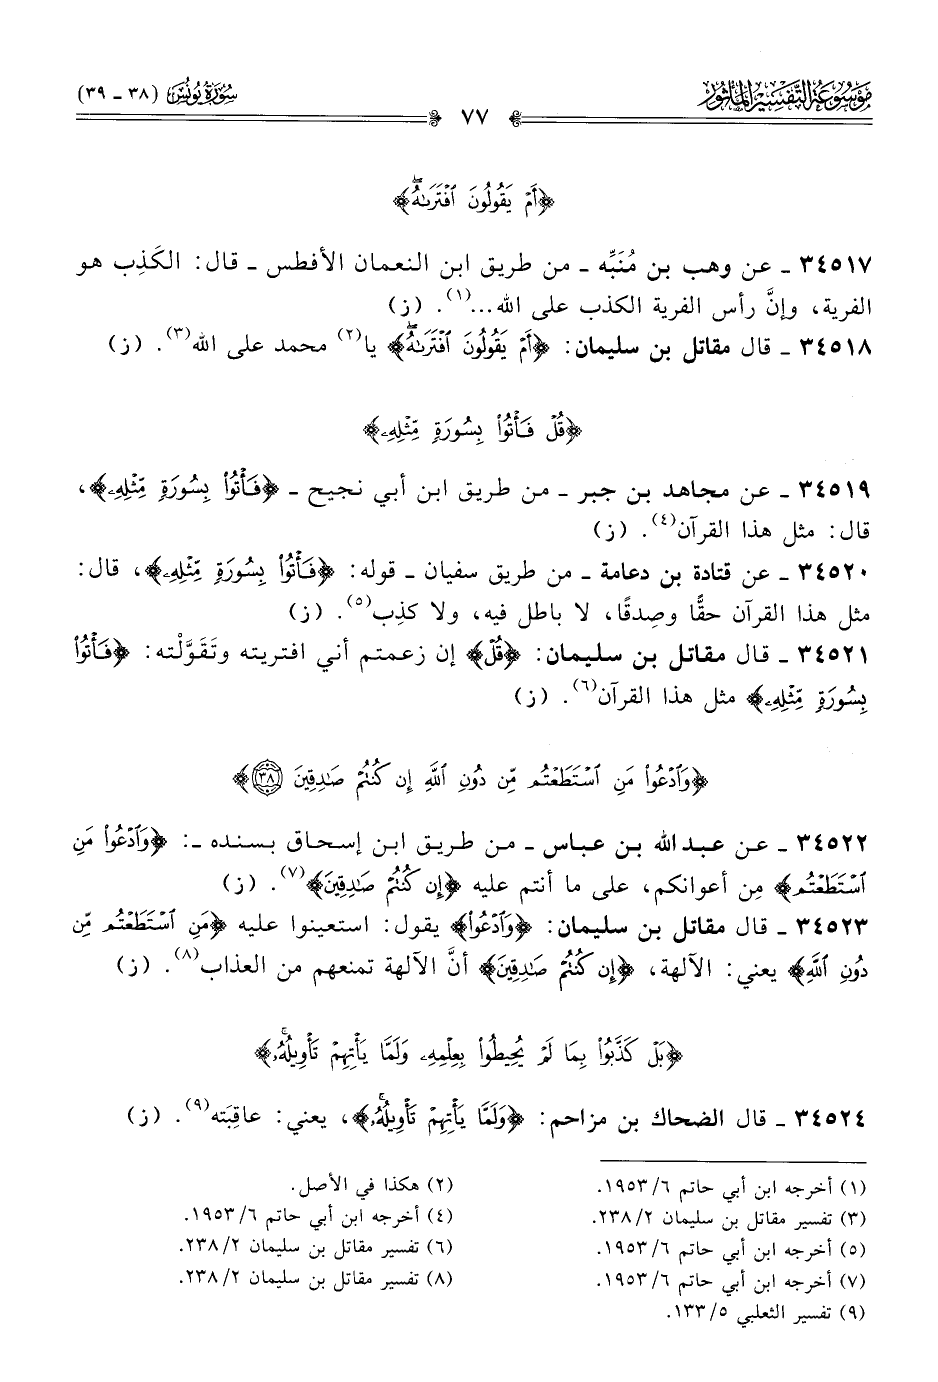 موسوعة التفسير المأثور
سورة يونس (٣٨ - ٣٩)
٧٧
﴿أَمْ يَقُولُونَ ٱفْتَرَىٰهُۖ﴾
٣٤٥١٧ ـ عن وهب بن مُنَبِّه ـ من طريق ابن النعمان الأفطس ـ قال: الكَذِب هو
الفرية، وإنَّ رأس الفرية الكذب على الله...(١). (ز)
٣٤٥١٨ ـ قال مقاتل بن سليمان: ﴿أَمْ يَقُولُونَ ٱفْتَرَىٰهُۖ﴾ يا(٢) محمد على الله(٣). (ز)
﴿قُلْ فَأْتُوا۟ بِسُورَةٍ مِّثْلِهِۦ﴾
٣٤٥١٩ ـ عن مجاهد بن جبر ـ من طريق ابن أبي نجيح ـ ﴿فَأْتُوا۟ بِسُورَةٍ مِّثْلِهِۦ﴾،
قال: مثل هذا القرآن(٤). (ز)
٣٤٥٢٠ ـ عن قتادة بن دعامة ـ من طريق سفيان ـ قوله: ﴿فَأْتُوا۟ بِسُورَةٍ مِّثْلِهِۦ﴾، قال:
مثل هذا القرآن حقًّا وصِدقًا، لا باطل فيه، ولا كذِب(٥). (ز)
٣٤٥٢١ ـ قال مقاتل بن سليمان: ﴿قُلْ﴾ إن زعمتم أني افتريته وتَقَوَّلْته: ﴿فَأْتُوا۟
بِسُورَةٍ مِّثْلِهِۦ﴾ مثل هذا القرآن(٦). (ز)
﴿وَٱدْعُوا۟ مَنِ ٱسْتَطَعْتُم مِّن دُونِ ٱللَّهِ إِن كُنتُمْ صَٰدِقِينَ ٣٨﴾
٣٤٥٢٢ ـ عن عبد الله بن عباس ـ من طريق ابن إسحاق بسنده ـ: ﴿وَٱدْعُوا۟ مَنِ
ٱسْتَطَعْتُم﴾ مِن أعوانكم، على ما أنتم عليه ﴿إِن كُنتُمْ صَٰدِقِينَ﴾(٧). (ز)
٣٤٥٢٣ ـ قال مقاتل بن سليمان: ﴿وَٱدْعُوا۟﴾ يقول: استعينوا عليه ﴿مَنِ ٱسْتَطَعْتُم مِّن
دُونِ ٱللَّهِ﴾ يعني: الآلهة، ﴿إِن كُنتُمْ صَٰدِقِينَ﴾ أنَّ الآلهة تمنعهم من العذاب(٨). (ز)
﴿بَلْ كَذَّبُوا۟ بِمَا لَمْ يُحِيطُوا۟ بِعِلْمِهِۦ وَلَمَّا يَأْتِهِمْ تَأْوِيلُهُۥۚ﴾
٣٤٥٢٤ ـ قال الضحاك بن مزاحم: ﴿وَلَمَّا يَأْتِهِمْ تَأْوِيلُهُۥۚ﴾، يعني: عاقِبَته(٩). (ز)
(١) أخرجه ابن أبي حاتم ٦/ ١٩٥٣.
(٢) هكذا في الأصل.
(٣) تفسير مقاتل بن سليمان ٢/ ٢٣٨.
(٤) أخرجه ابن أبي حاتم ٦/ ١٩٥٣.
(٥) أخرجه ابن أبي حاتم ٦/ ١٩٥٣.
(٦) تفسير مقاتل بن سليمان ٢/ ٢٣٨.
(٧) أخرجه ابن أبي حاتم ٦/ ١٩٥٣.
(٨) تفسير مقاتل بن سليمان ٢/ ٢٣٨.
(٩) تفسير الثعلبي ٥/ ١٣٣.